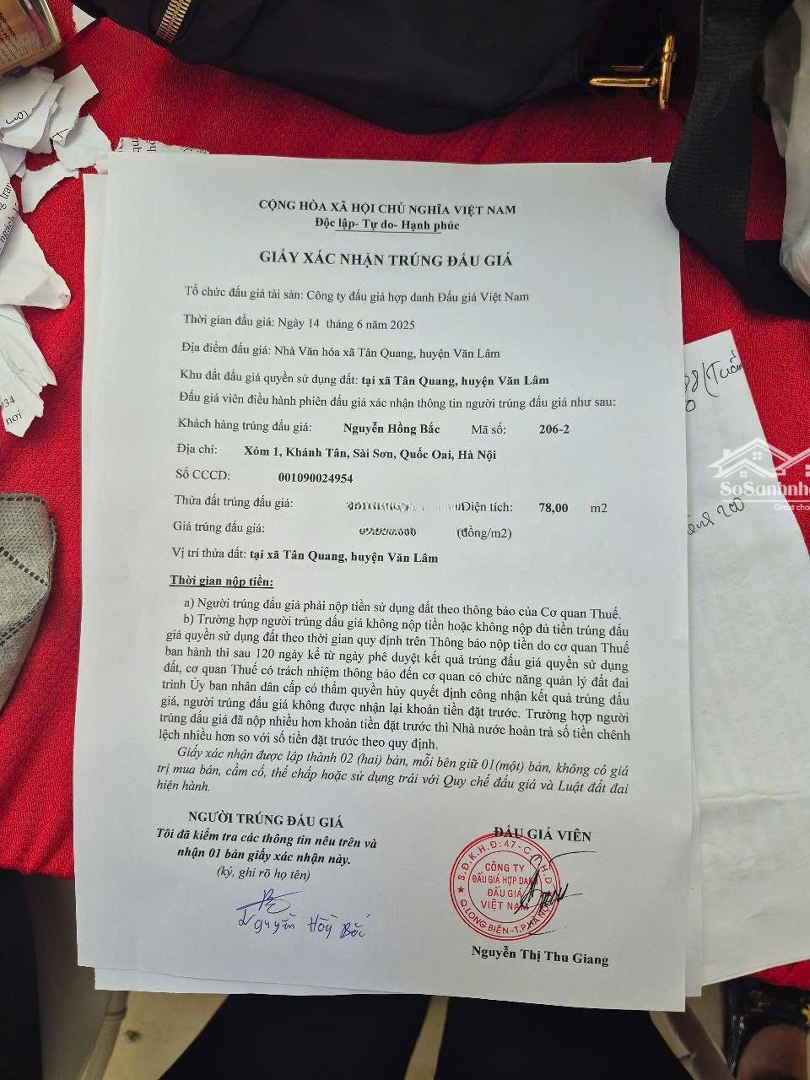 CỘNG HÒA XÃ HỘI CHỦ NGHĨA VIỆT NAM
Độc lập- Tự do- Hạnh phúc
GIẤY XÁC NHẬN TRÚNG ĐẤU GIÁ
Tổ chức đấu giá tài sản: Công ty đấu giá hợp danh Đấu giá Việt Nam
Thời gian đấu giá: Ngày 14 tháng 6 năm 2025
Địa điểm đấu giá: Nhà Văn hóa xã Tân Quang, huyện Văn Lâm
Khu đất đấu giá quyền sử dụng đất: tại xã Tân Quang, huyện Văn Lâm
Đấu giá viên điều hành phiên đấu giá xác nhận thông tin người trúng đấu giá như sau:
Khách hàng trúng đấu giá: Nguyễn Hồng Bắc Mã số: 206-2
Địa chỉ: Xóm 1, Khánh Tân, Sài Sơn, Quốc Oai, Hà Nội
Số CCCD: 001090024954
Thửa đất trúng đấu giá: Diện tích: 78,00 m2
Giá trúng đấu giá: (đồng/m2)
Vị trí thửa đất: tại xã Tân Quang, huyện Văn Lâm
Thời gian nộp tiền:
a) Người trúng đấu giá phải nộp tiền sử dụng đất theo thông báo của Cơ quan Thuế.
b) Trường hợp người trúng đấu giá không nộp tiền hoặc không nộp đủ tiền trúng đấu
giá quyền sử dụng đất theo thời gian quy định trên Thông báo nộp tiền do cơ quan Thuế
ban hành thì sau 120 ngày kể từ ngày phê duyệt kết quả trúng đấu giá quyền sử dụng
đất, cơ quan Thuế có trách nhiệm thông báo đến cơ quan có chức năng quản lý đất đai
trình Ủy ban nhân dân cấp có thẩm quyền hủy quyết định công nhận kết quả trúng đấu
giá, người trúng đấu giá không được nhận lại khoản tiền đặt trước. Trường hợp người
trúng đấu giá đã nộp nhiều hơn khoản tiền đặt trước thì Nhà nước hoàn trả số tiền chênh
lệch nhiều hơn so với số tiền đặt trước theo quy định.
Giấy xác nhận được lập thành 02 (hai) bản, mỗi bên giữ 01(một) bản, không có giá
trị mua bán, cầm cố, thế chấp hoặc sử dụng trái với Quy chế đấu giá và Luật đất đai
hiện hành.
NGƯỜI TRÚNG ĐẤU GIÁ
Tôi đã kiểm tra các thông tin nêu trên và
nhận 01 bản giấy xác nhận này.
(ký, ghi rõ họ tên)
Nguyễn Hồng Bắc
ĐẤU GIÁ VIÊN
CÔNG TY
ĐẤU GIÁ HỢP DANH
ĐẤU GIÁ
VIỆT NAM
Q.LONG BIÊN-T.P.HÀ NỘI
Nguyễn Thị Thu Giang
200